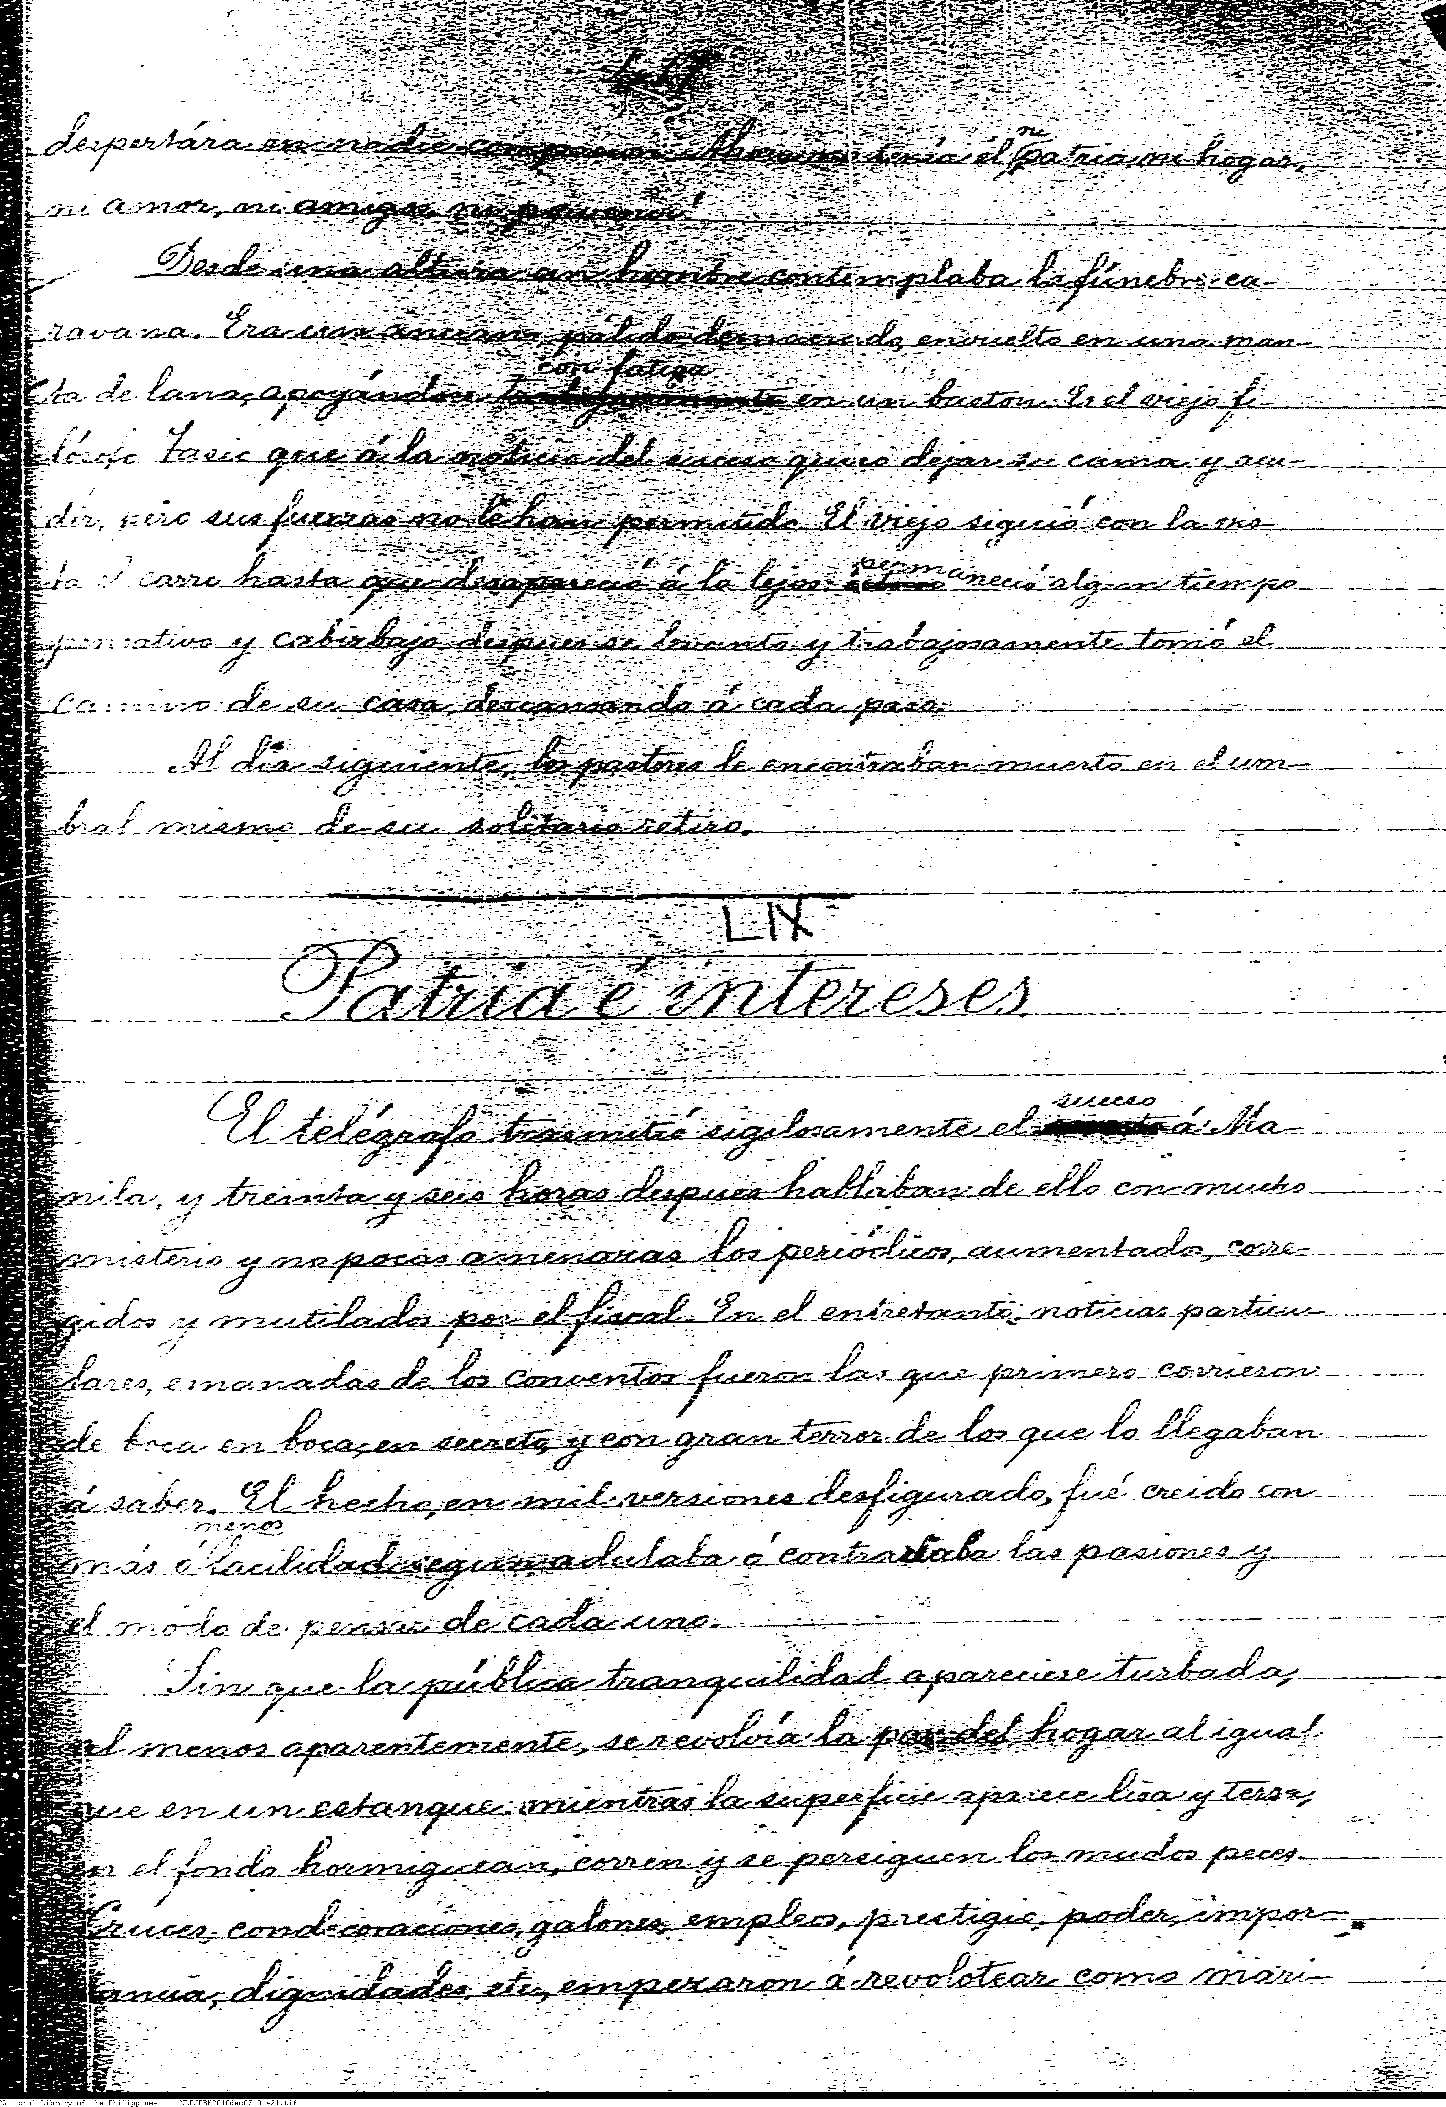 despertára en nadie compasion. Ahora no tenía él ni patria ni hogar,
ni amor, ni amigos, ni porvenir!
Desde una altura un hombre contemplaba la fúnebre ca-
ravana. Era un anciano, pálido, demacrado, envuelto en una man-
con fatiga
ta de lana, apoyándose en un baston. Es el viejo fi-
lósofo Tasio que á la noticia del suceso quiso dejar su cama y acu-
dir, pero sus fuerzas no le han permitido. El viejo siguió con la vis-
ta el carro hasta que desapareció á lo lejos: permaneció algun tiempo
pensativo y cabizbajo, despues se levantó y trabajosamente tomó el
camino de su casa, descansando á cada paso.
Al dia siguiente, los pastores le encontraban muerto en el um-
bral mismo de su solitario retiro.
LIX
Patria é intereses
suceso
El telégrafo trasmitió sigilosamente el á Ma-
nila, y treinta y seis horas despues hablaban de ello con mucho
misterio y no pocas amenazas los periódicos, aumentado, corre-
gidos y mutilados por el fiscal. En el entretanto, noticias particu-
lares, emanadas de los conventos fueron las que primero corrieron
de boca en boca, en secreto, y con gran terror de los que lo llegaban
á saber. El hecho, en mil versiones desfigurado, fué creido con
menos
más ó facilidad segun adulaba ó contrariaba las pasiones y
el modo de pensar de cada uno.
Sin que la pública tranquilidad apareciese turbada,
al menos aparentemente, se revolvía la paz del hogar al igual
que en un estanque: mientras la superficie aparece lisa y tersa,
en el fondo hormiguean, corren y se persiguen los mudos peces.
Cruces, condecoraciones, galones, empleos, prestigio, poder, impor-
tancia, dignidades, etc, empezaron á revolotear como mari-